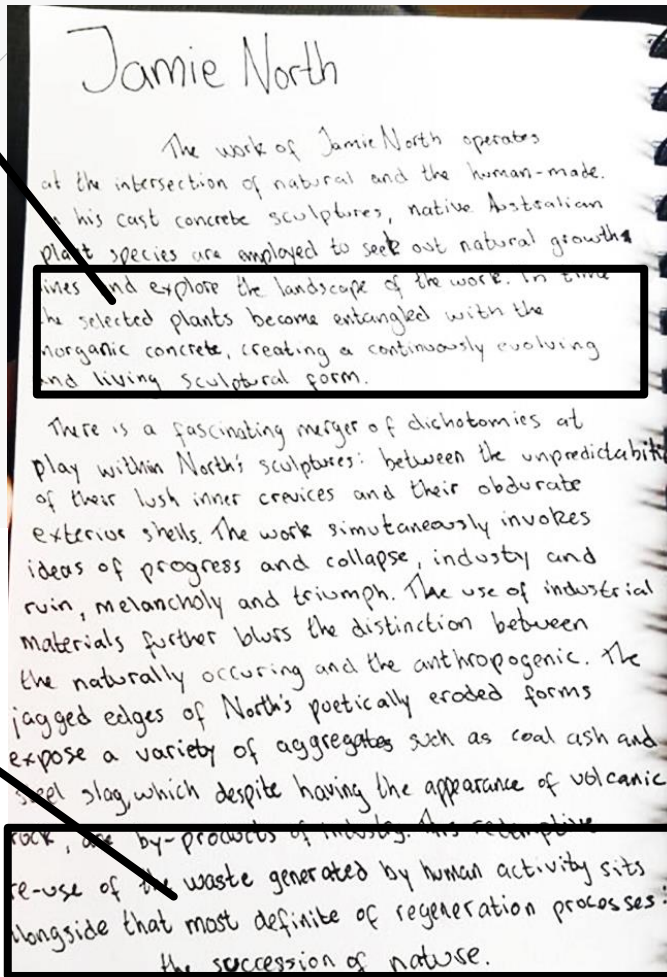 Jamie North
The work of Jamie North operates
at the intersection of natural and the human-made.
his cast concrete sculptures, native Australian
plant species are employed to seek out natural growth
lines and explore the landscape of the work. In time
the selected plants become entangled with the
inorganic concrete, creating a continuously evolving
and living sculptural form.
There is a fascinating merger of dichotomies at
play within North's sculptures: between the unpredictabilit
of their lush inner crevices and their obdurate
exterior shells. The work simutaneously invokes
ideas of progress and collapse, industy and
ruin, melancholy and triumph. The use of industrial
materials further blurs the distinction between
the naturally occuring and the anthropogenic. The
jagged edges of North's poetically eroded forms
expose a variety of aggregates such as coal ash and
steel slag, which despite having the appearance of volcanic
rock, are by-products of industry. This redemptive
re-use of the waste generated by human activity sits
alongside that most definite of regeneration processes:
the succession of nature.